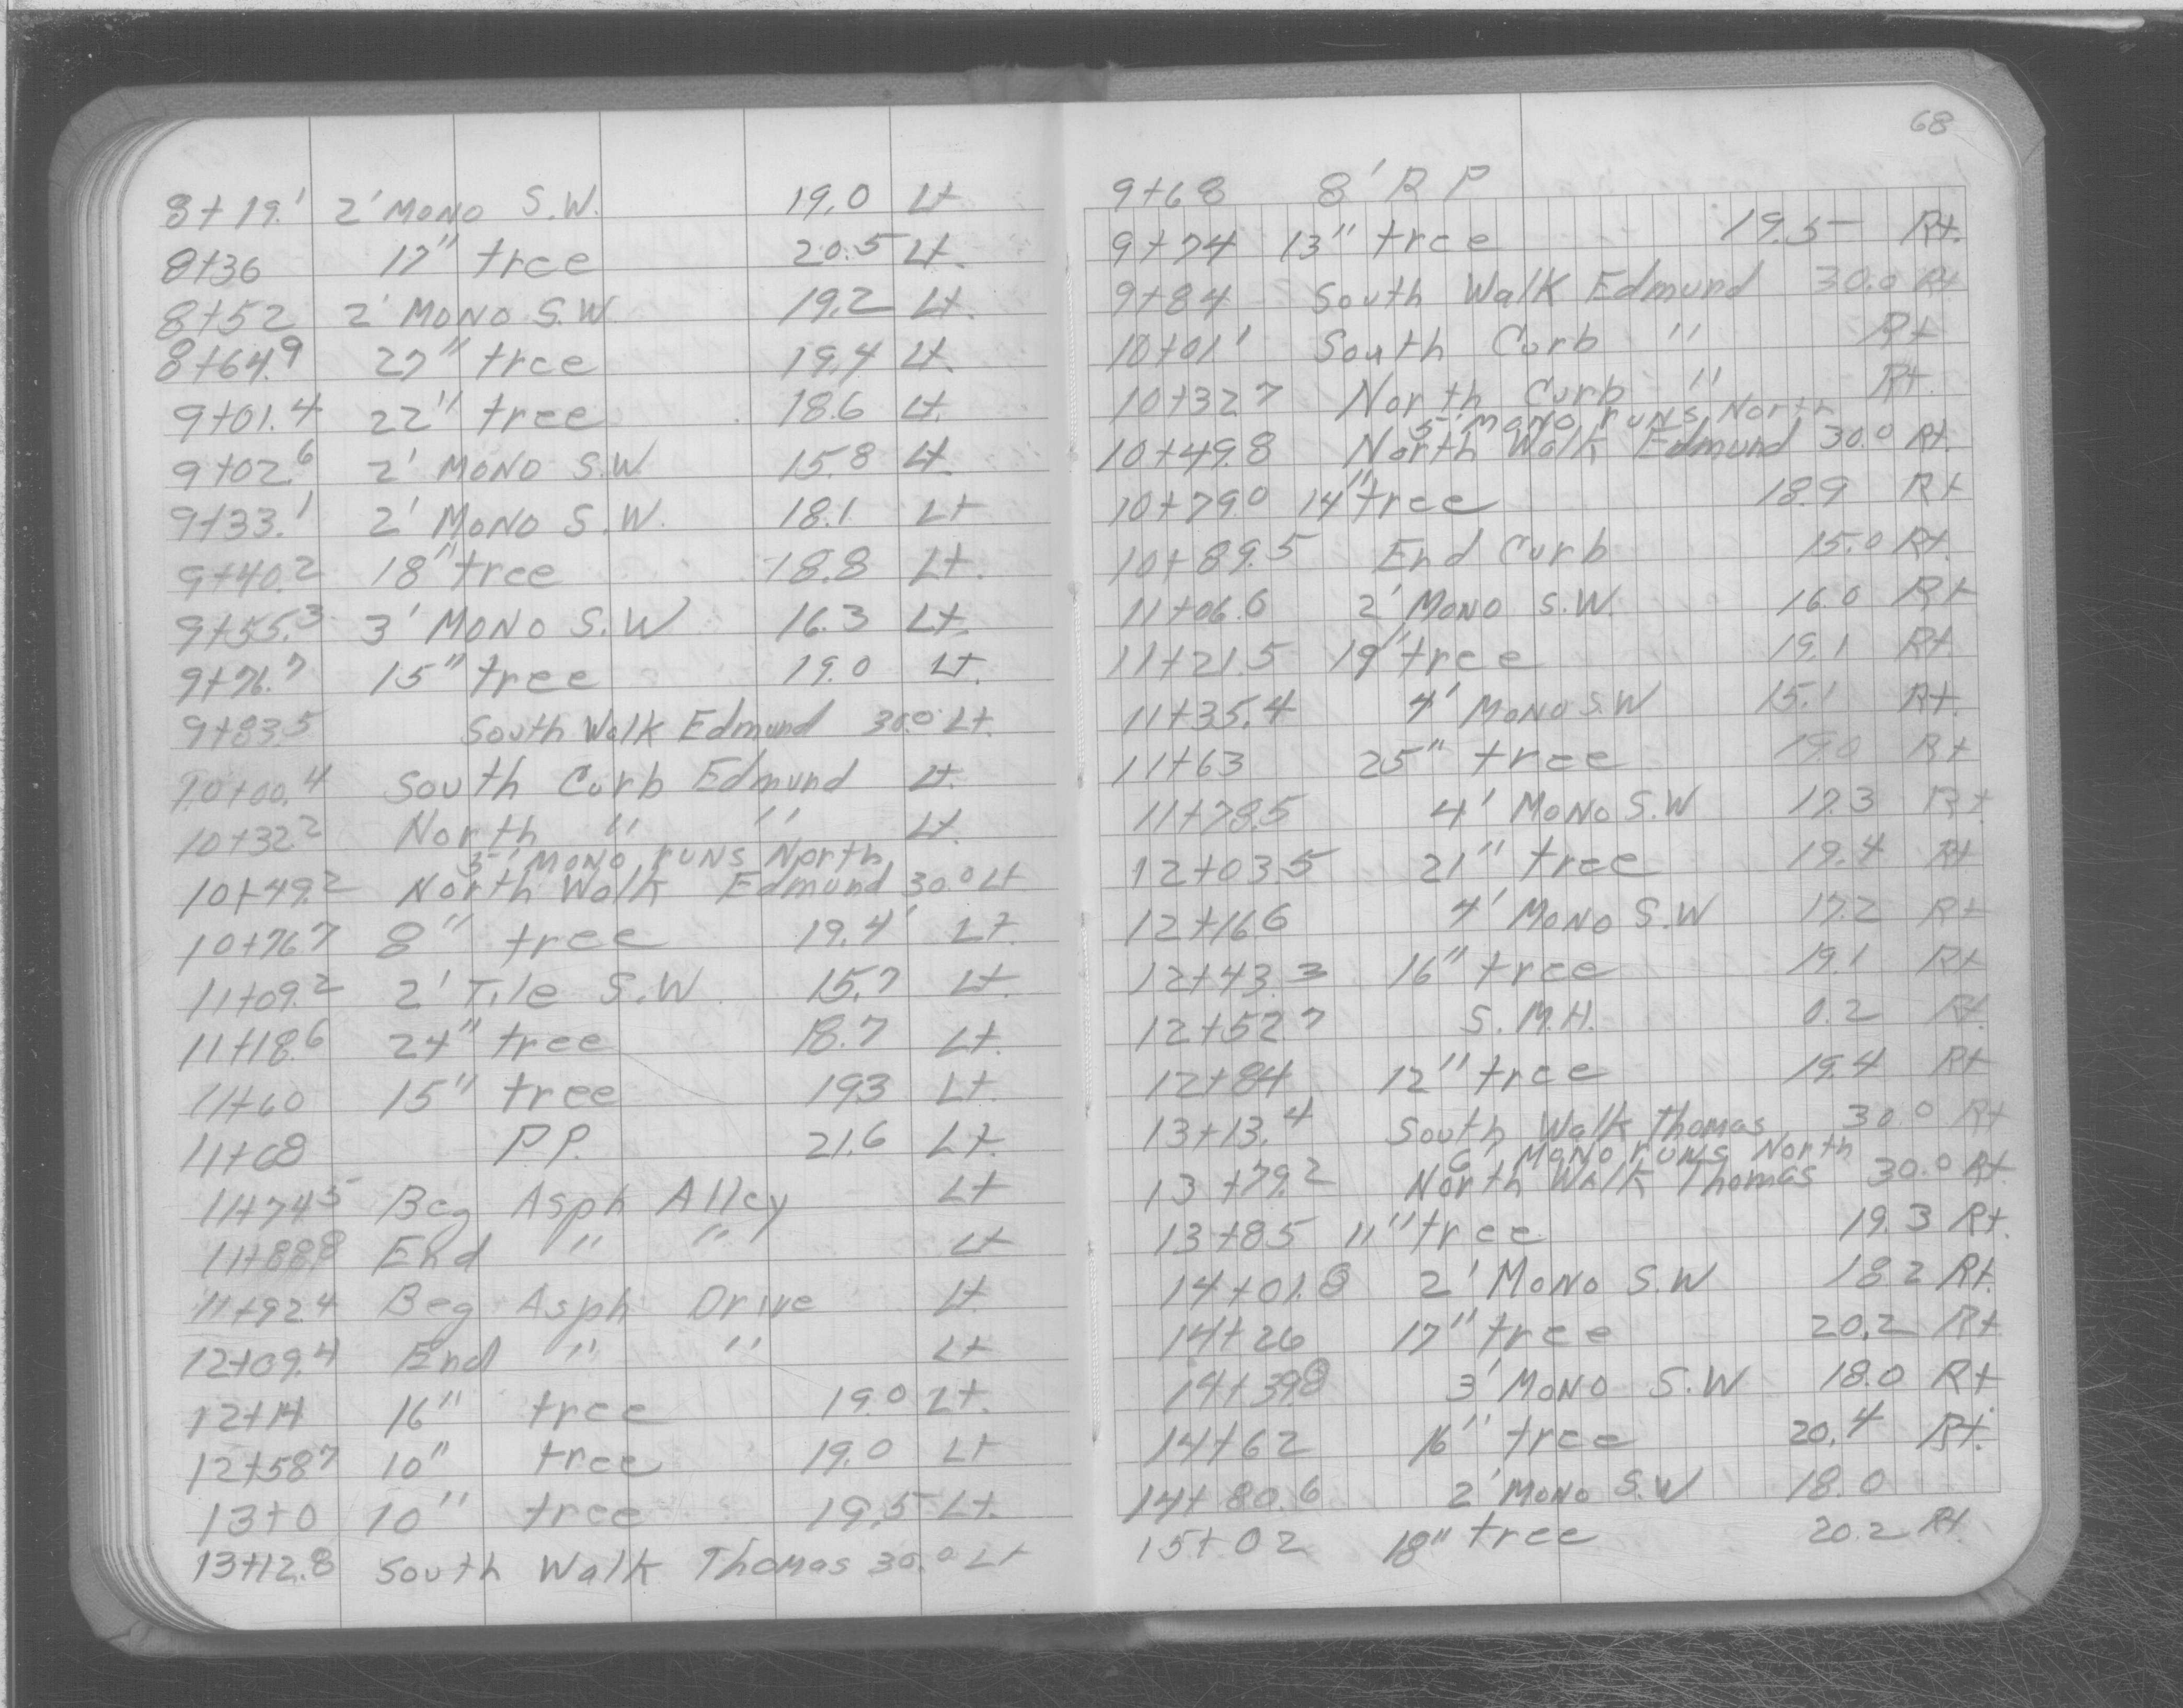 8+19.1 2' MONO S.W. 19.0 Lt
8+36 17" tree 20.5 Lt.
8+52 2' MONO S.W 19.2 Lt.
8+64.9 27" tree 19.4 Lt.
9+01.4 22" tree 18.6 Lt.
9+02.6 2' MONO S.W 15.8 Lt.
9+33.1 2' MONO S.W. 18.1 Lt
9+40.2 18" tree 18.8 Lt.
9+55.3 3' MONO S.W 16.3 Lt.
9+76.7 15" tree 19.0 Lt.
9+83.5 South Walk Edmund 30.0 Lt.
10+00.4 South Curb Edmund Lt.
10+32.2 North " " Lt.
5' MONO runs North
10+49.2 North Walk Edmund 30.0 Lt
10+76.7 8" tree 19.4' Lt.
11+09.2 2' Tile S.W. 15.7 Lt.
11+18.6 24" tree 18.7 Lt.
11+60 15" tree 19.3 Lt.
11+68 P.P. 21.6 Lt.
11+74.5 Beg Asph Alley Lt
11+88.8 End " " Lt
11+92.4 Beg Asph Drive Lt.
12+09.4 End " " Lt
12+14 16" tree 19.0 Lt.
12+58.7 10" tree 19.0 Lt
13+0 10" tree 19.5 Lt.
13+12.8 South Walk Thomas 30.0 Lt
68
9+68 8' R P
9+74 13" tree 19.5 Rt.
9+84 South Walk Edmund 30.0 Rt
10+01' South Curb " Rt
10+32.7 North Curb " Rt.
5' MONO runs North
10+49.8 North Walk Edmund 30.0 Rt.
10+79.0 14" tree 18.9 Rt
10+89.5 End Curb 15.0 Rt.
11+06.6 2' MONO S.W. 16.0 Rt
11+21.5 19" tree 19.1 Rt.
11+35.4 4' MONO S.W 15.1 Rt.
11+63 25" tree 19.0 Rt
11+78.5 4' MONO S.W 17.3 Rt.
12+03.5 21" tree 19.4 Rt
12+16.6 4' MONO S.W 17.2 Rt
12+43.3 16" tree 19.1 Rt
12+52.7 S.M.H. 0.2 Rt.
12+84 12" tree 19.4 Rt
13+13.4 South Walk Thomas 30.0 Rt
6' MONO runs North
13+79.2 North Walk Thomas 30.0 Rt.
13+85 11" tree 19.3 Rt.
14+01.8 2' MONO S.W 18.2 Rt.
14+26 17" tree 20.2 Rt
14+39.8 3' MONO S.W 18.0 Rt
14+62 16" tree 20.4 Rt.
14+80.6 2' MONO S.W 18.0
15+02 18" tree 20.2 Rt.